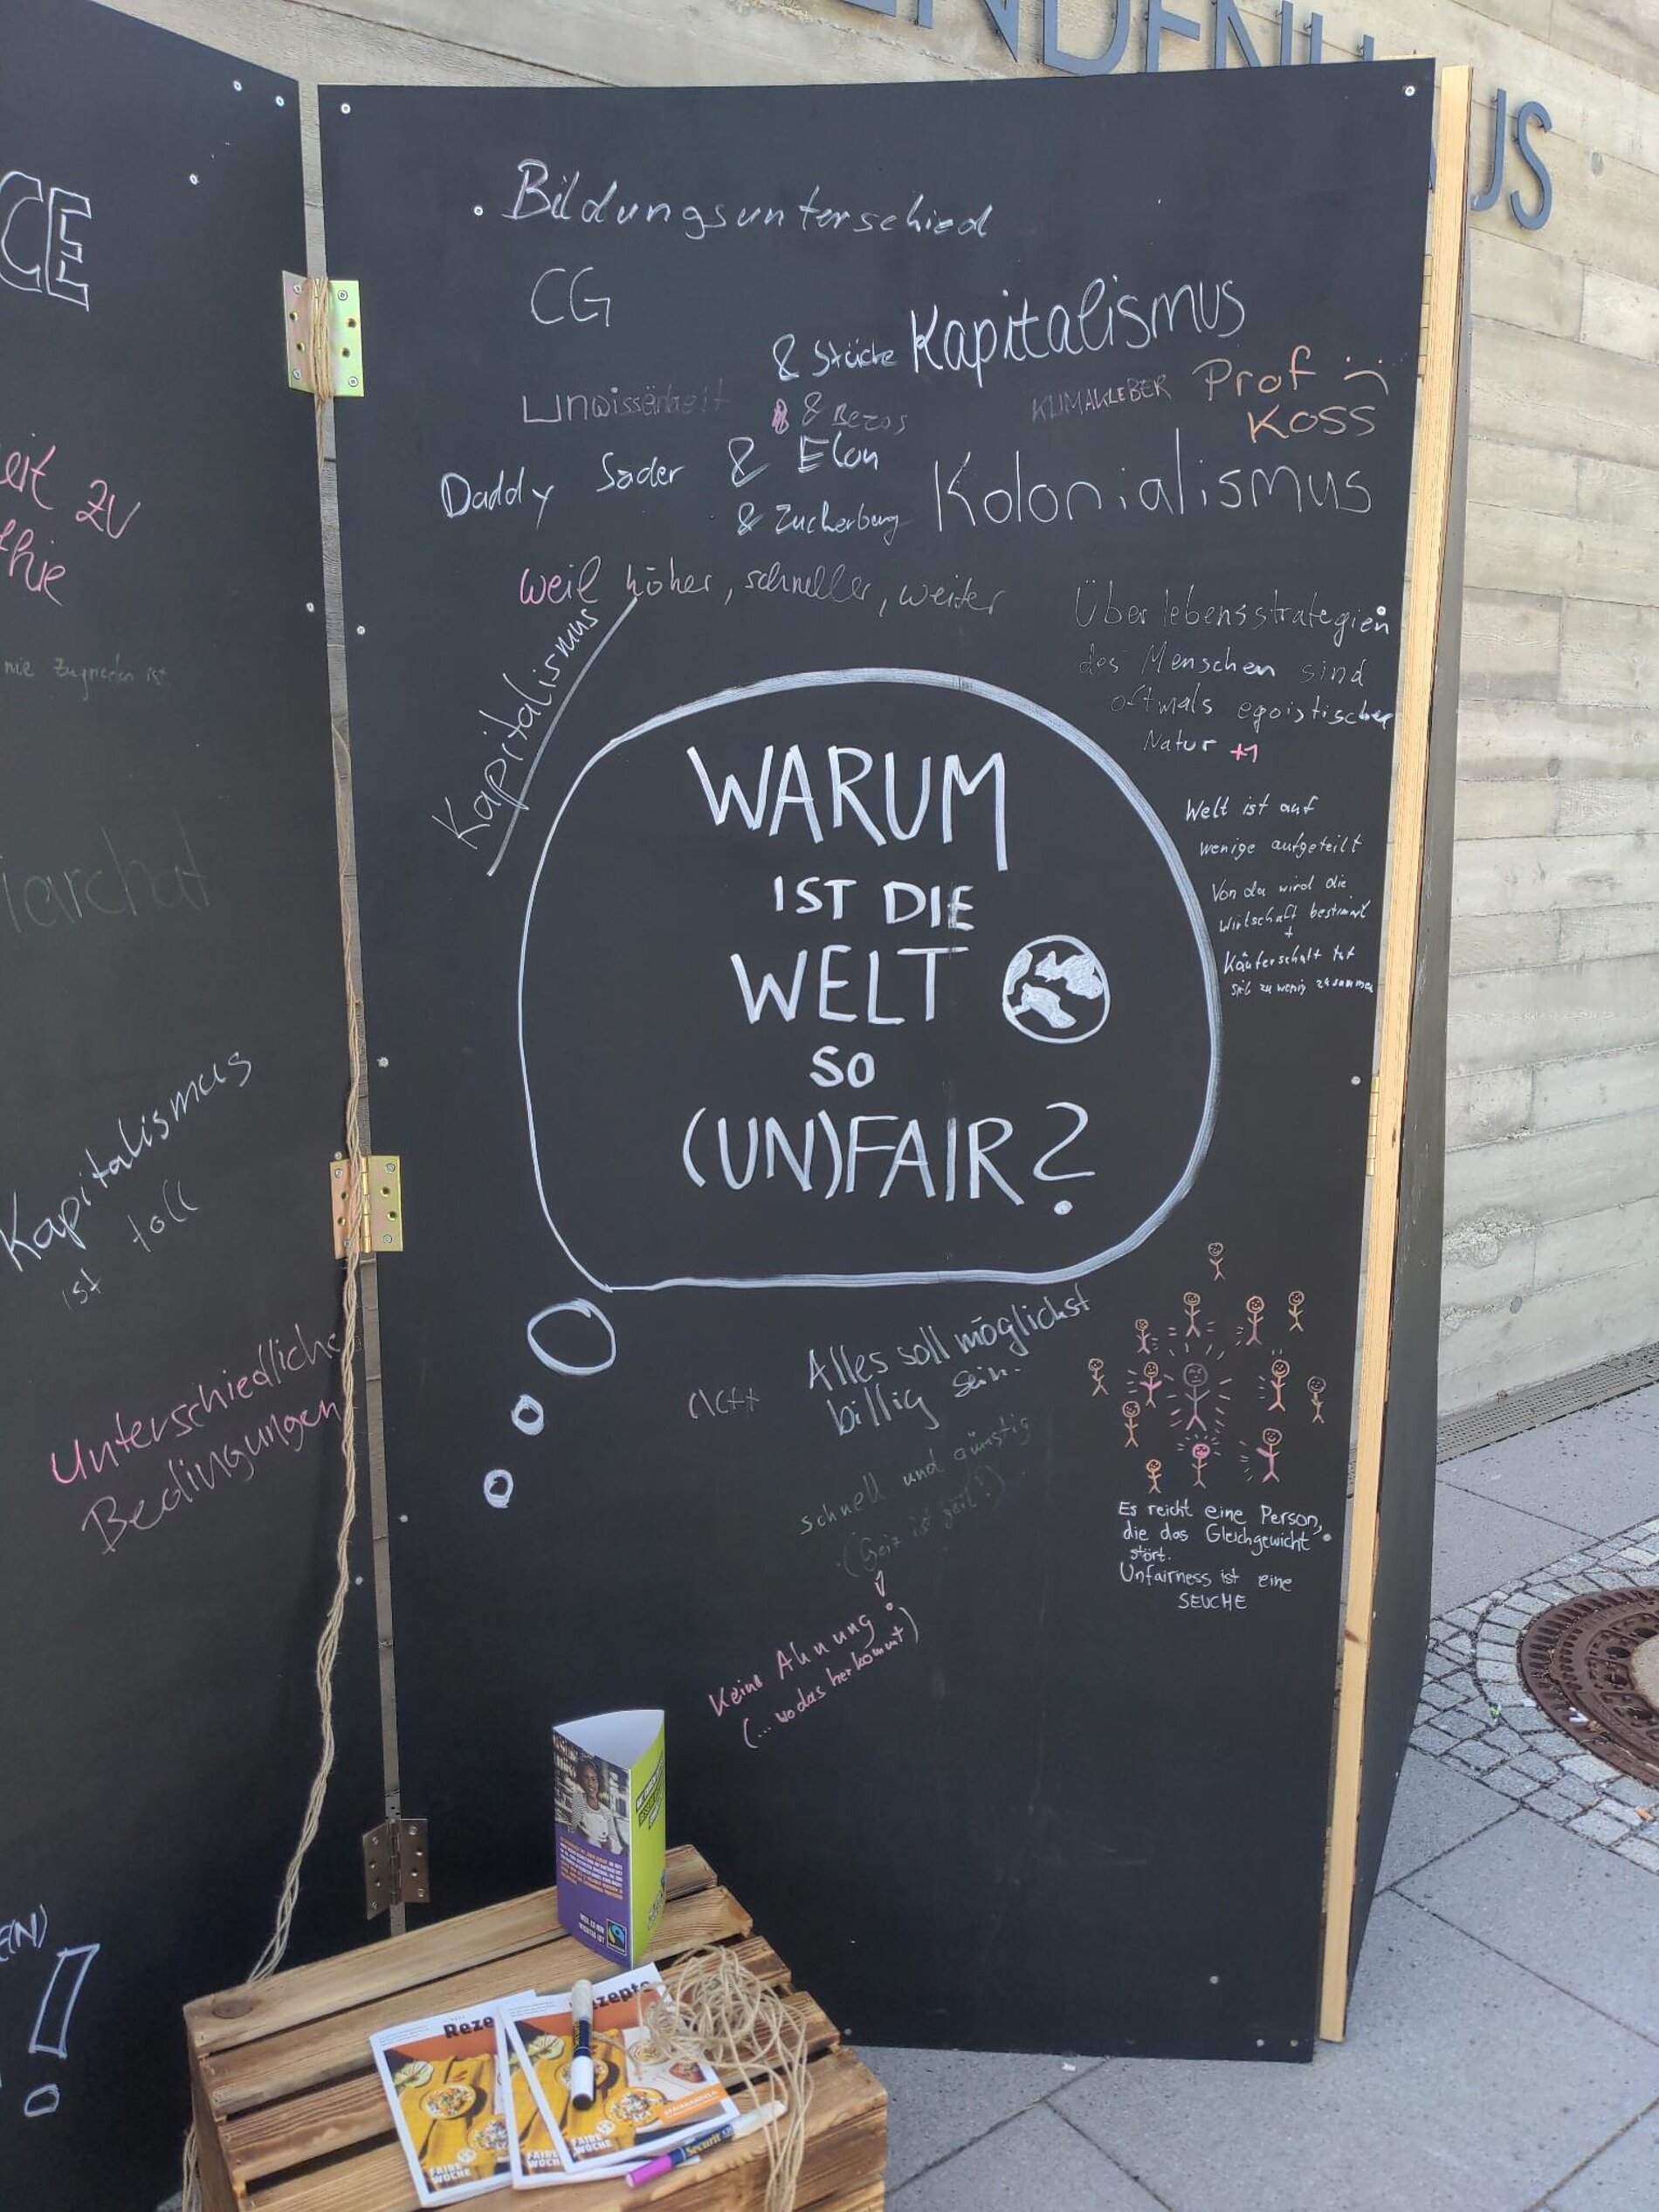 CE
eit zu
thie
nie zufrieden ist
iarchat
Kapitalismus
ist toll
Unterschiedliche
Bedingungen
EN)
!
NDENH
US
Bildungsunterschied
CG
& Stücke Kapitalismus
Unwissenheit
& Bezos
KLIMAKLEBER
Prof :(
Koss
Daddy Sader & Elon
& Zuckerberg
Kolonialismus
weil höher, schneller, weiter
Kapitalismus
Überlebensstrategien
des Menschen sind
oftmals egoistischer
Natur +1
Welt ist auf
wenige aufgeteilt
Von da wird die
Wirtschaft bestimmt
+
Käuferschaft tut
sich zu wenig zusammen
WARUM
IST DIE
WELT
SO
(UN)FAIR?
Alles soll möglichst
billig sein.
schnell und günstig
(Geiz ist geil!)
Keine Ahnung!
(... wo das herkommt)
Es reicht eine Person,
die das Gleichgewicht
stört.
Unfairness ist eine
SEUCHE
Reze
Rezepte
FAIRE
WOCHE
FAIRE
WOCHE
FAIRE
WOCHE
Securit